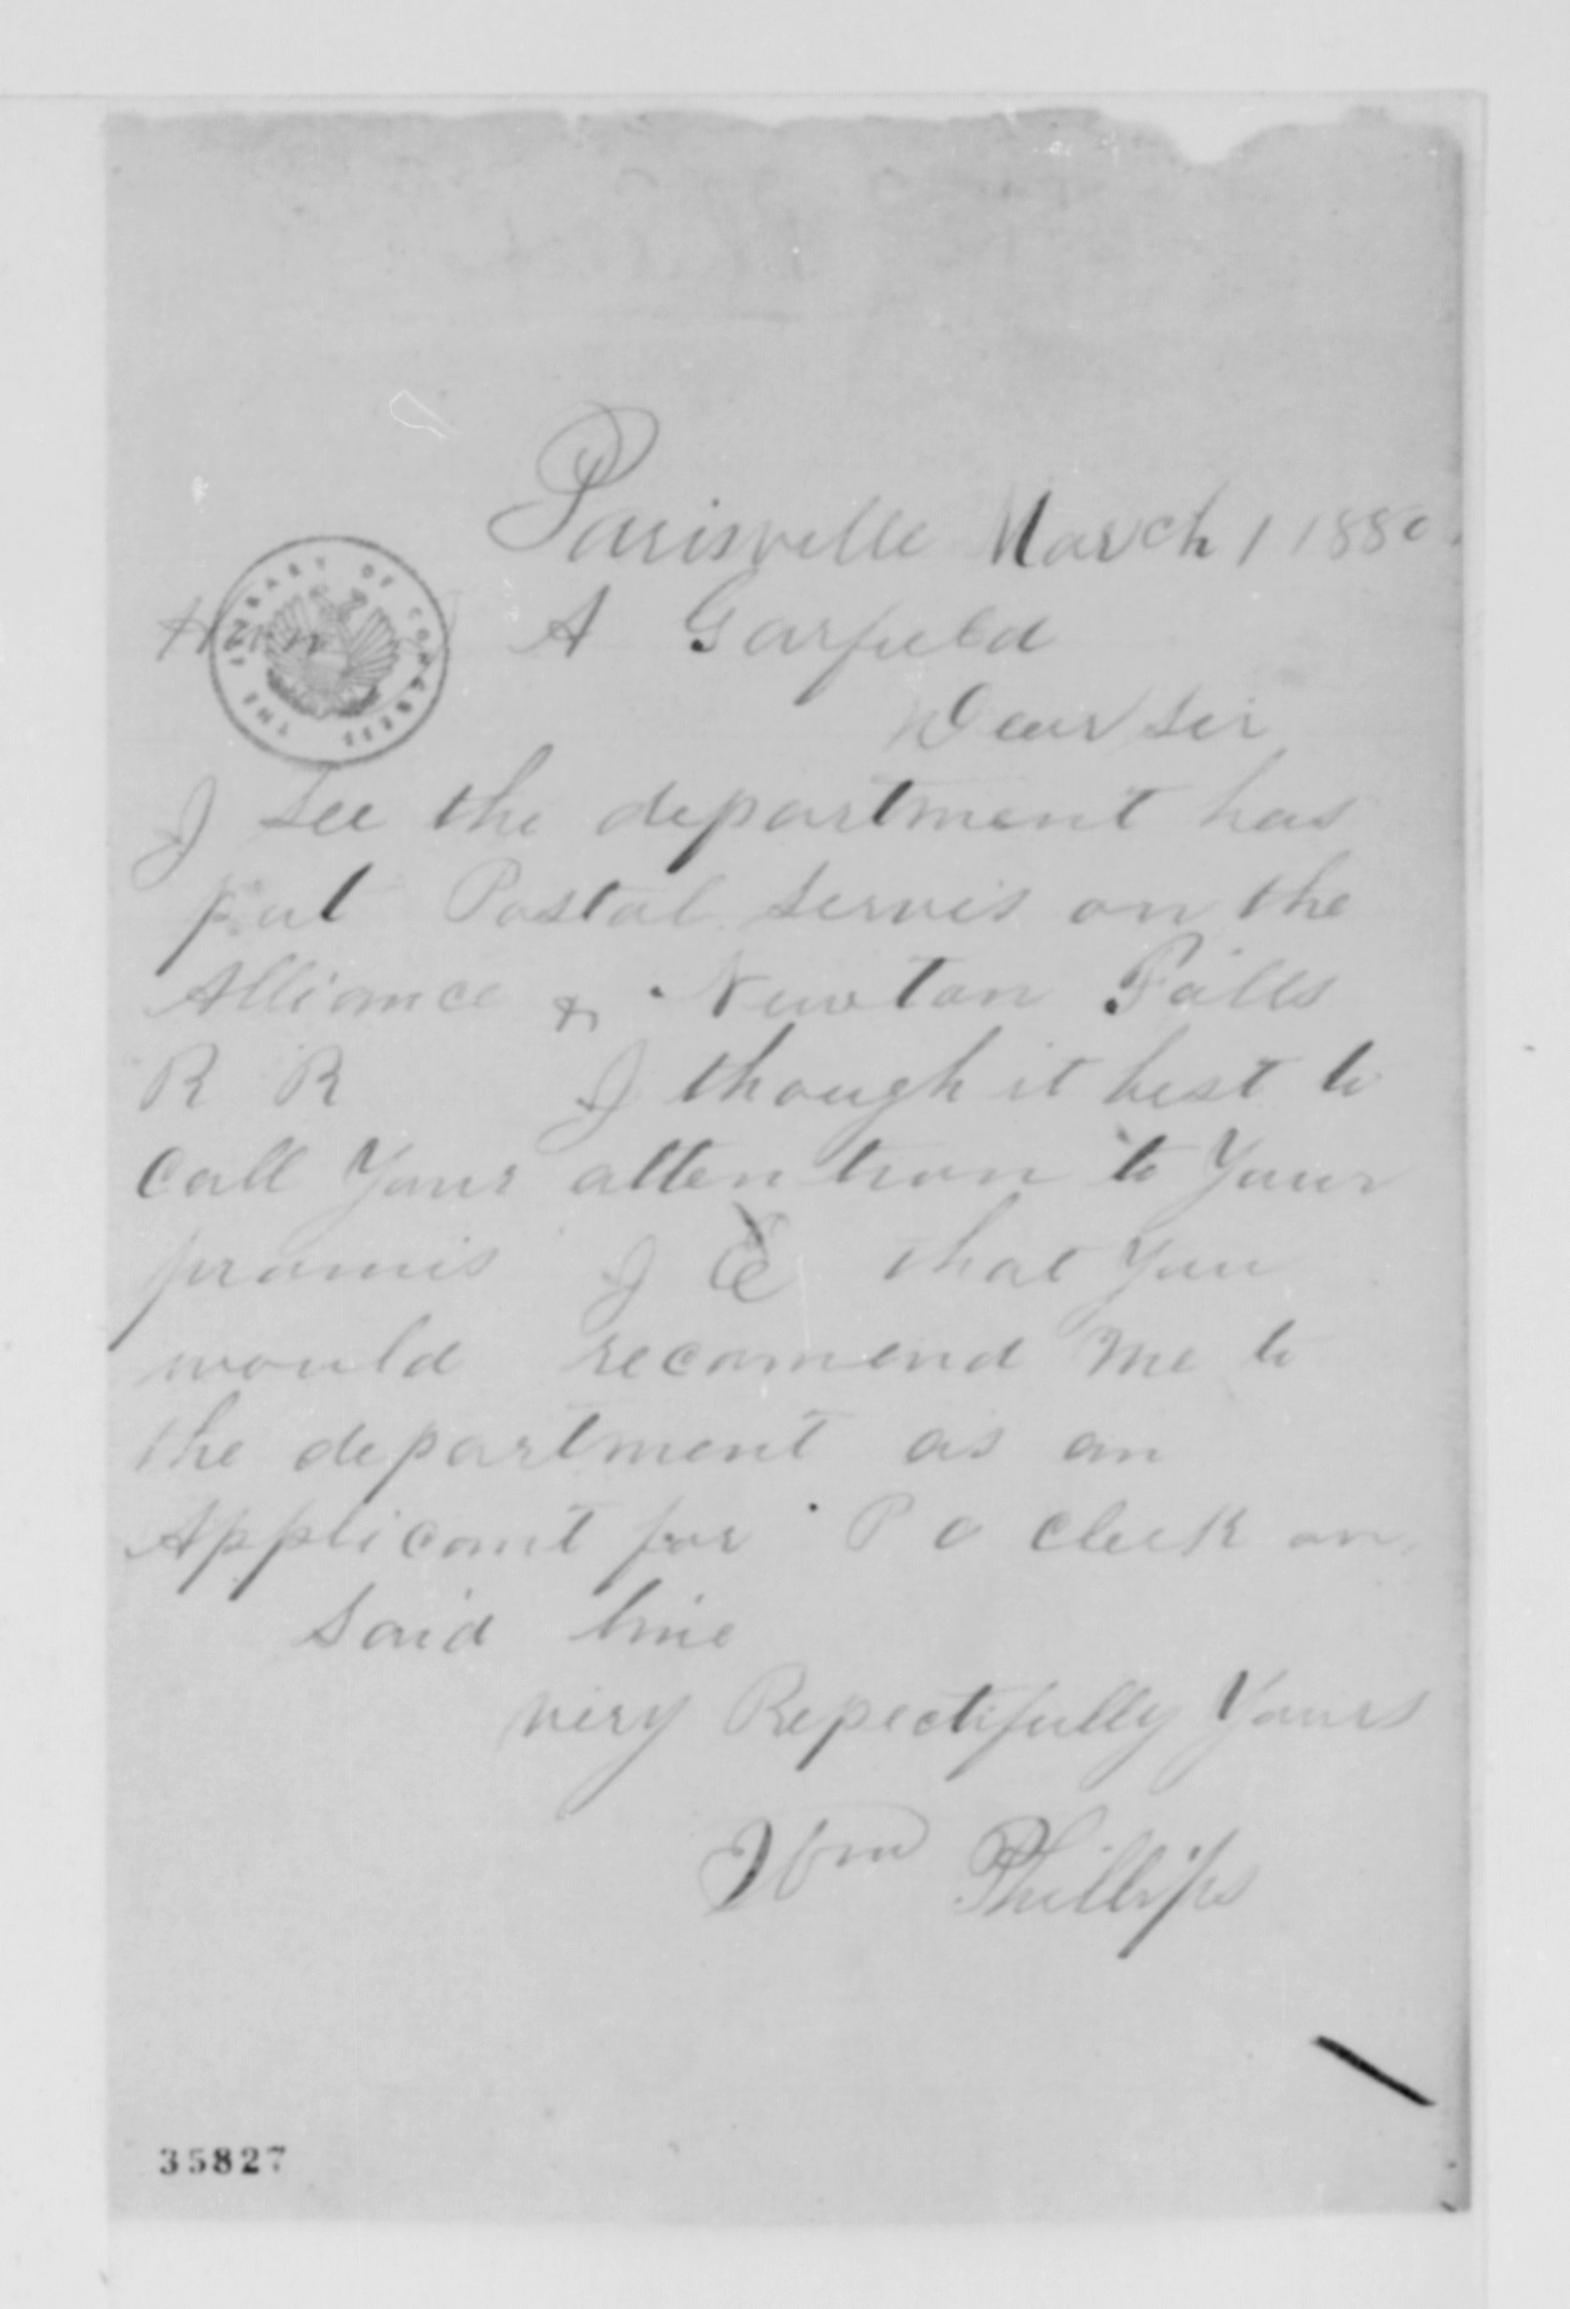 Parisville March 1 1880.
Hon A Garfield
Dear Sir
I see the department has
put Postal servis on the
Alliance & Newton Falls
R R I though it best to
Call Your attention to Your
promis I that You
would recomend me to
the department as an
Applicant for P O clerk on
said line
very Repectifully Yours
Wm Phillips
THE LIBRARY OF CONGRESS
35827